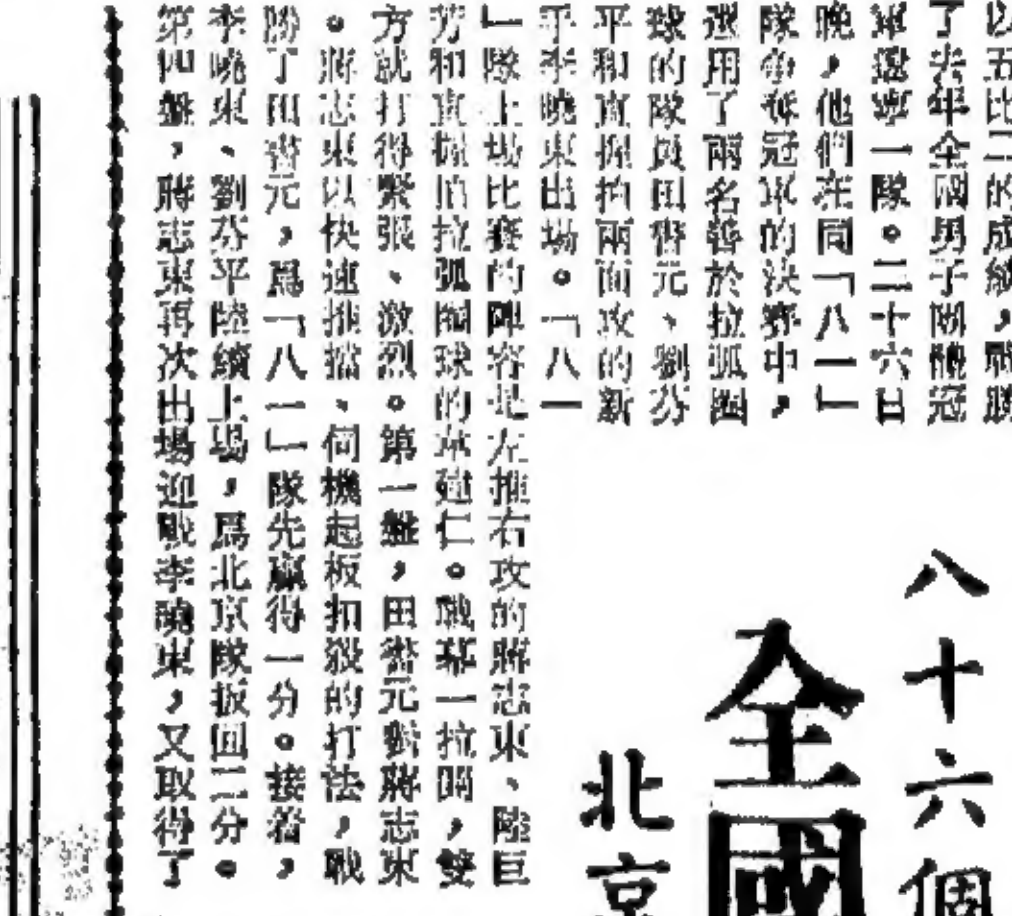 以五比二的成績，戰勝
了去年全國男子團體冠
軍遼寧一隊。二十六日
晚，他們在同「八一」
隊爭奪冠軍的決賽中，
選用了兩名善於拉弧圈
球的隊員田晉元、劉芬
平和直握拍兩面攻的新
手李曉東出場。「八一
」隊上場比賽的陣容是左推右攻的蔣志東、陸巨
芳和直握拍拉弧圈球的卓建仁。戰幕一拉開，雙
方就打得緊張、激烈。第一盤，田晉元對蔣志東
。蔣志東以快速推擋、伺機起板扣殺的打法，戰
勝了田晉元，爲「八一」隊先贏得一分。接着，
李曉東、劉芬平陸續上場，爲北京隊扳回二分。
第四盤，蔣志東再次出場迎戰李曉東，又取得了
八十六個
全國
北京